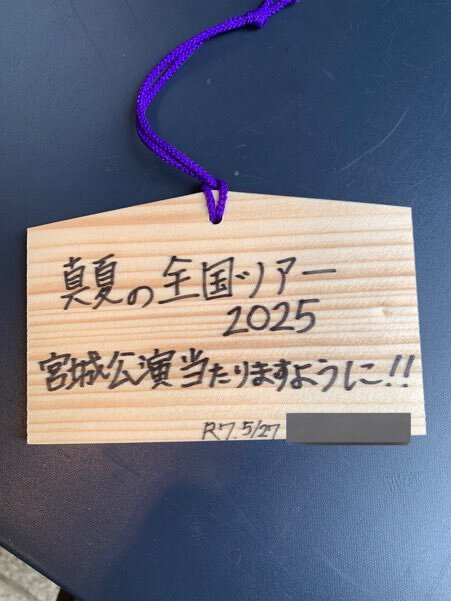 真夏の全国ツアー
2025
宮城公演当たりますように!!
R7.5/27